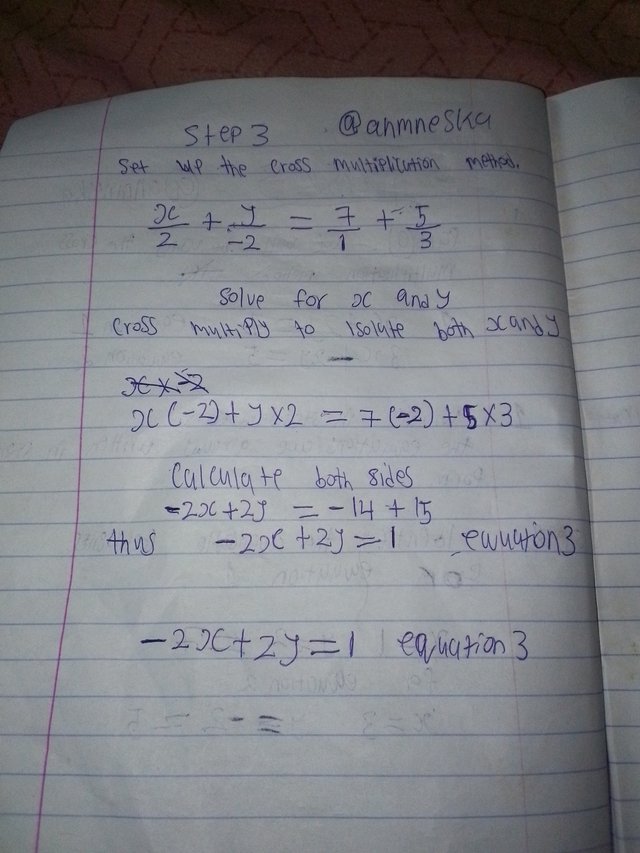 Step 3 @ahmneska
Set up the cross multiplication method.
x/2 + y/-2 = 7/1 + 5/3
Solve for x and y
Cross multiply to Isolate both x and y
x x -2
x(-2) + y x 2 = 7(-2) + 5 x 3
Calculate both sides
-2x + 2y = -14 + 15
thus -2x + 2y = 1 ewuation 3
-2x + 2y = 1 equation 3